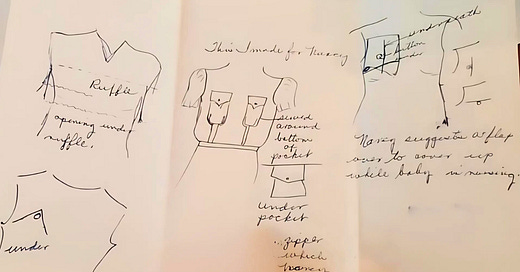 Ruffle
opening under
ruffle.
under
This I made for Nursey
sewed
around
bottom
of
pocket
under
pocket
zipper
which
underneath
button
under
suggests a flap
over to cover up
while baby is nursing.